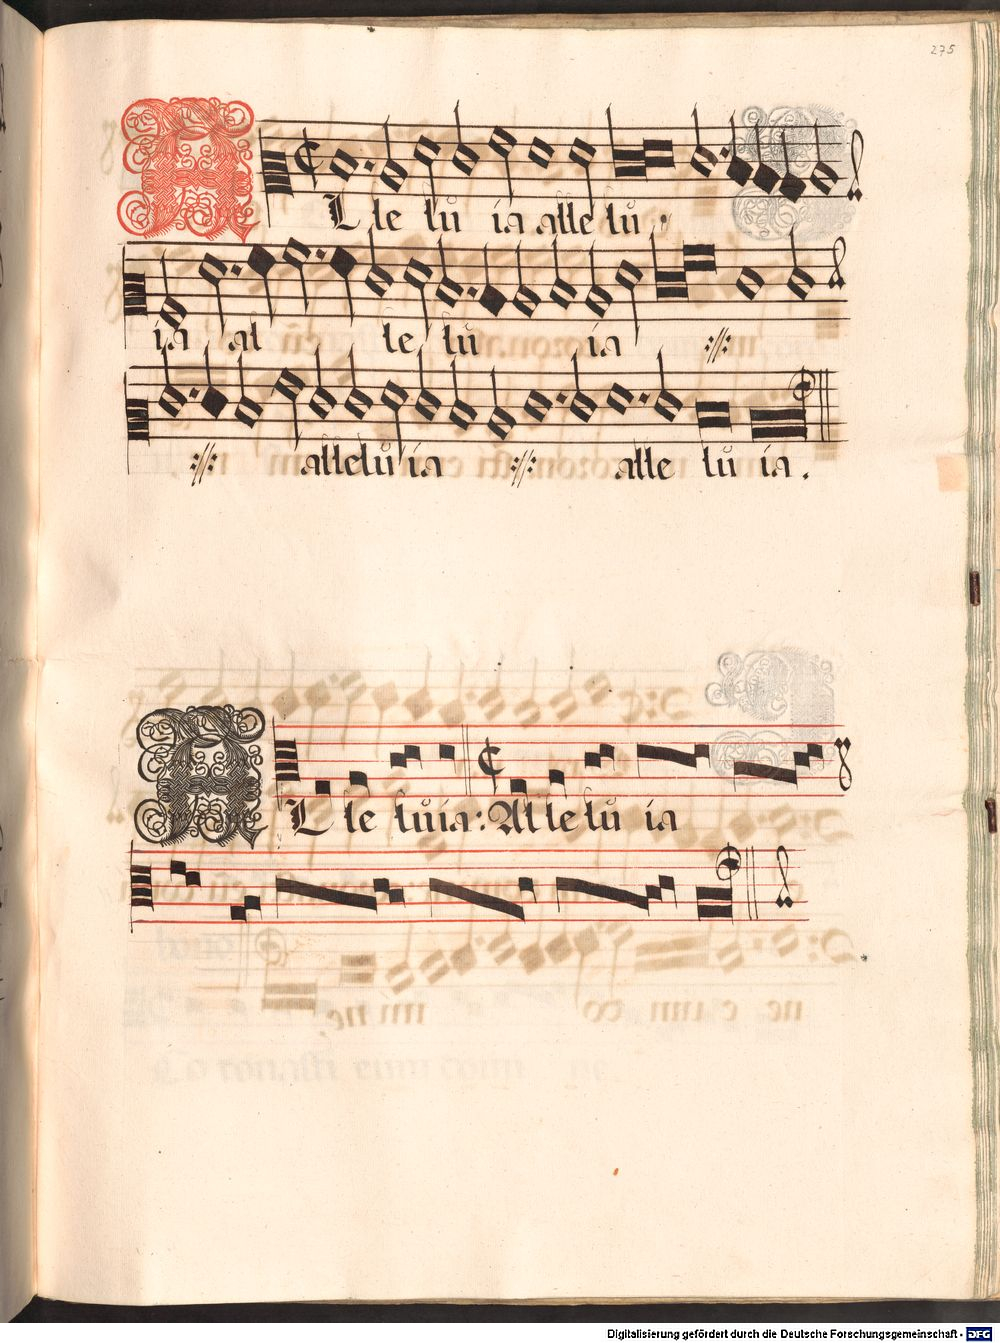 275
ALle lu ia alle lu :
ia al le lu ia :||:
:||: alleluia :||: alle lu ia.
ALle luia: Alle lu ia
Digitalisierung gefördert durch die Deutsche Forschungsgemeinschaft - DFG